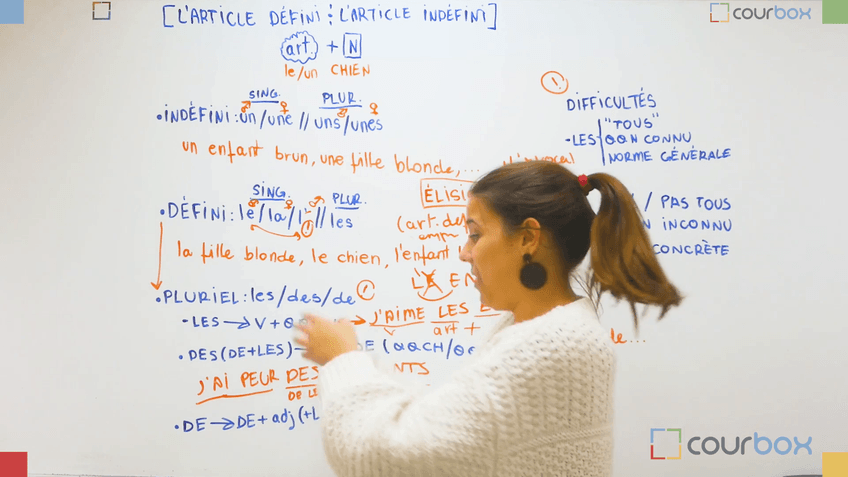 [L'ARTICLE DÉFINI : L'ARTICLE INDÉFINI]
courbox
art. + N
le/un CHIEN
SING. PLUR.
• INDÉFINI : un/une // uns/unes
un enfant brun, une fille blonde, ...
SING. PLUR.
• DÉFINI : le/la/l' // les
!
la fille blonde, le chien, l'enfant
• PLURIEL : les/des/de !
- LES → V +
→ J'AIME LES
V art +
• DES (DE+LES) → DE (QQCH/
J'AI PEUR DES NTS
DE LE
• DE → DE + adj (+
ÉLISI
(art. dé
LE EN
!
DIFFICULTÉS
- LES "TOUS"
QQN CONNU
NORME GÉNÉRALE
/ PAS TOUS
N INCONNU
CONCRÈTE
courbox